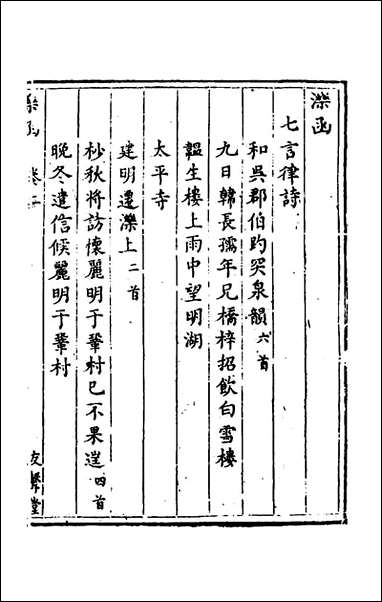 濼函
七言律詩
和吳郡伯趵突泉韻六首
九日韓長孺年兄橋梓招飲白雪樓
韞生樓上雨中望明湖
太平寺
建明遷濼上二首
杪秋將訪懷麗明于鞏村已不果遂四首
晚冬遣信候麗明于鞏村
濼函 卷二
友聲堂